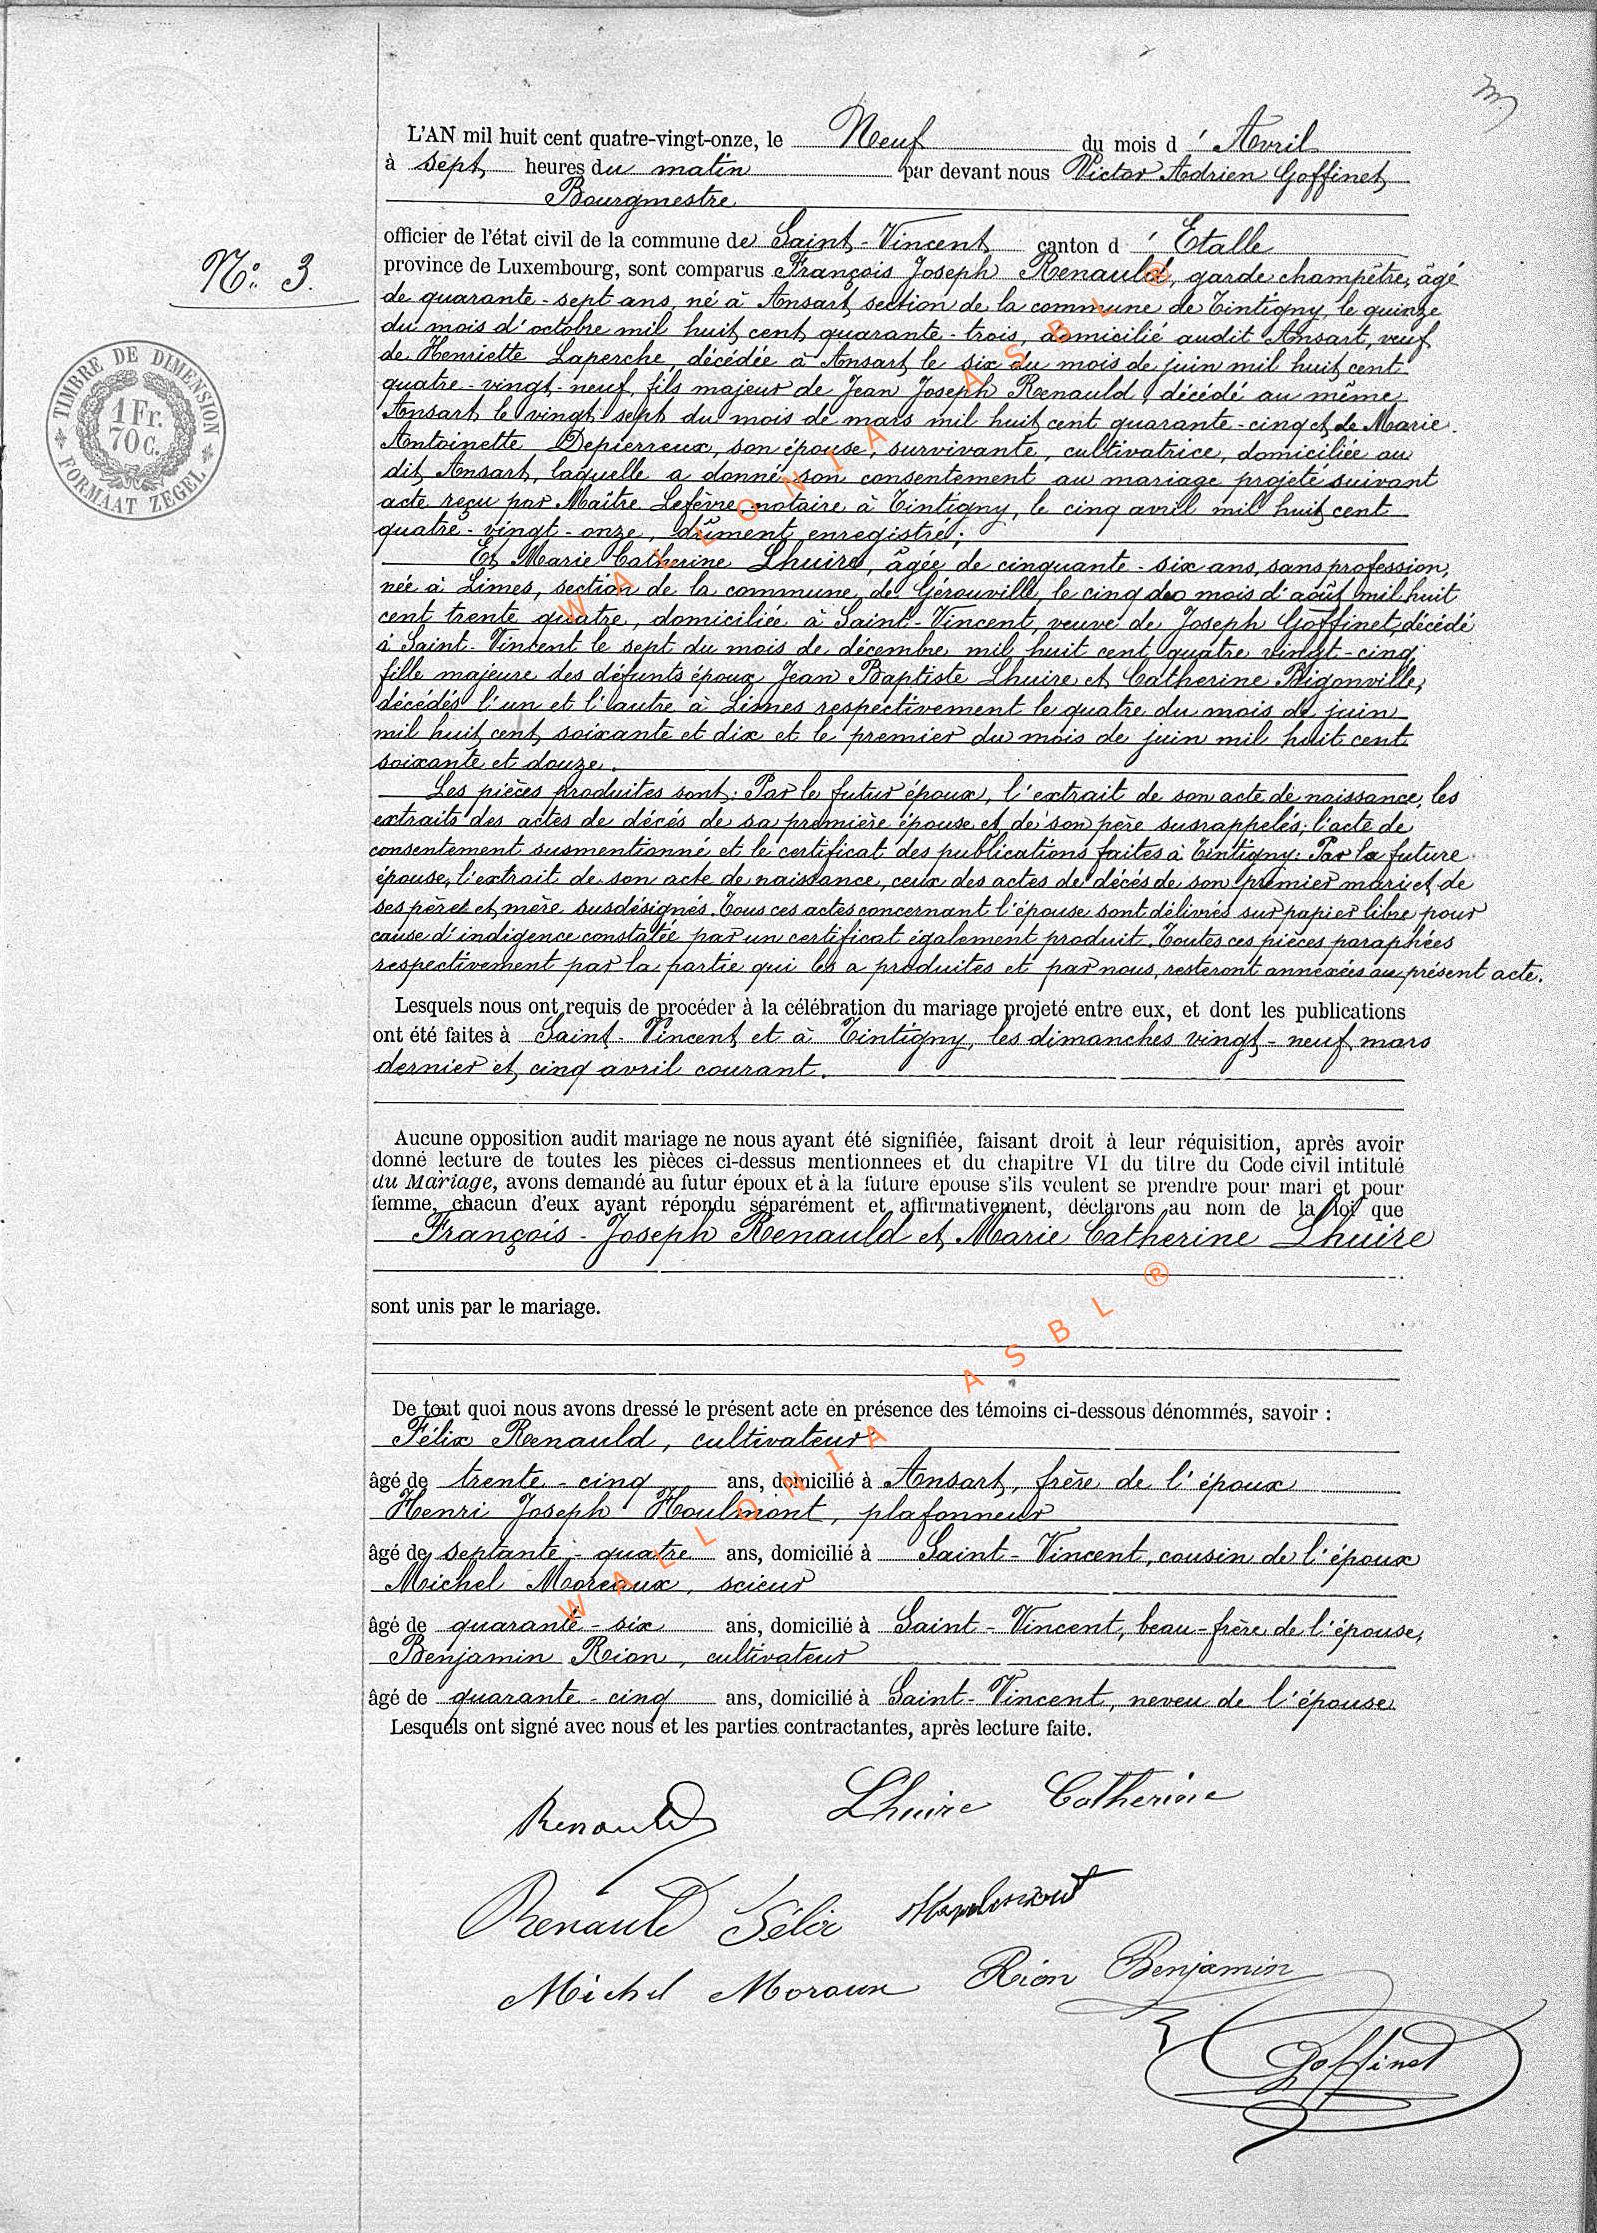 L'AN mil huit cent quatre-vingt-onze, le Neuf du mois d' Avril
à sept heures du matin par devant nous Victor Adrien Goffinet,
Bourgmestre
officier de l'état civil de la commune de Saint-Vincent canton d' Etalle
province de Luxembourg, sont comparus François Joseph Renauld, garde champêtre, âgé
de quarante-sept ans, né à Ansart, section de la commune de Tintigny, le quinze
du mois d'octobre mil huit cent quarante-trois, domicilié audit Ansart, veuf
de Henriette Laperche, décédée à Ansart, le six du mois de juin mil huit cent
quatre-vingt-neuf, fils majeur de Jean Joseph Renauld, décédé au même
Ansart le vingt sept du mois de mars mil huit cent quarante-cinq et de Marie
Antoinette Depierreux, son épouse, survivante, cultivatrice, domiciliée au
dit Ansart, laquelle a donné son consentement au mariage projeté suivant
acte reçu par Maître Lefèvre, notaire à Tintigny, le cinq avril mil huit cent
quatre-vingt-onze, dûment enregistré;
Et Marie Catherine Lhuire, âgée de cinquante-six ans, sans profession,
née à Limes, section de la commune de Gérouville, le cinq du mois d'août mil huit
cent trente quatre, domiciliée à Saint-Vincent, veuve de Joseph Goffinet, décédé
à Saint-Vincent le sept du mois de décembre mil huit cent quatre vingt-cinq,
fille majeure des défunts époux Jean Baptiste Lhuire et Catherine Bigonville,
décédés l'un et l'autre à Limes respectivement le quatre du mois de juin
mil huit cent soixante et dix et le premier du mois de juin mil huit cent
soixante et douze.
Les pièces produites sont: Par le futur époux, l'extrait de son acte de naissance, les
extraits des actes de décès de sa première épouse et de son père susrappelés; l'acte de
consentement susmentionné et le certificat des publications faites à Tintigny: Par la future
épouse, l'extrait de son acte de naissance, ceux des actes de décès de son premier mari et de
ses père et mère susdésignés. Tous ces actes concernant l'épouse sont délivrés sur papier libre pour
cause d'indigence constatée par un certificat également produit. Toutes ces pièces paraphées
respectivement par la partie qui les a produites et par nous, resteront annexées au présent acte.
Lesquels nous ont requis de procéder à la célébration du mariage projeté entre eux, et dont les publications
ont été faites à Saint-Vincent et à Tintigny, les dimanches vingt-neuf mars
dernier et cinq avril courant.
Aucune opposition audit mariage ne nous ayant été signifiée, faisant droit à leur réquisition, après avoir
donné lecture de toutes les pièces ci-dessus mentionnees et du chapitre VI du titre du Code civil intitulé
du Mariage, avons demandé au futur époux et à la future épouse s'ils veulent se prendre pour mari et pour
femme, chacun d'eux ayant répondu séparément et affirmativement, déclarons au nom de la loi que
François-Joseph Renauld et Marie Catherine Lhuire
sont unis par le mariage.
De tout quoi nous avons dressé le présent acte en présence des témoins ci-dessous dénommés, savoir :
Félix Renauld, cultivateur
âgé de trente-cinq ans, domicilié à Ansart, frère de l'époux
Henri Joseph Houlmont, plafonneur
âgé de septante-quatre ans, domicilié à Saint-Vincent, cousin de l'époux
Michel Moreaux, scieur
âgé de quarante-six ans, domicilié à Saint-Vincent, beau-frère de l'épouse,
Benjamin Rion, cultivateur
âgé de quarante-cinq ans, domicilié à Saint-Vincent, neveu de l'épouse
Lesquels ont signé avec nous et les parties contractantes, après lecture faite.
Renauld Lhuire Catherine
Renauld Félix Houlmont
Michel Moraux Rion Benjamin
Goffinet
N°: 3.
TIMBRE DE DIMENSION
1 Fr.
70 C.
FORMAAT ZEGEL
WALLONIA ASBL ®
WALLONIA ASBL ®